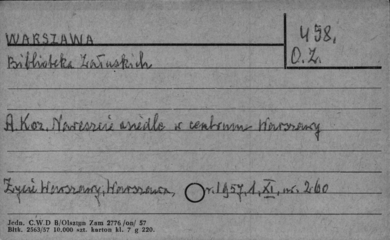 WARSZAWA
Biblioteka Załuskich
458.
O.Z.
A. Koz. Nareszcie osiedle w centrum Warszawy
Życie Warszawy, Warszawa, r. 1957, 1, XI, nr. 260
Jedn. C.W.D B/Olsztyn Zam 2776/on/ 57
Bltk. 2563/57 10.000 szt. karton kl. 7 g 220.